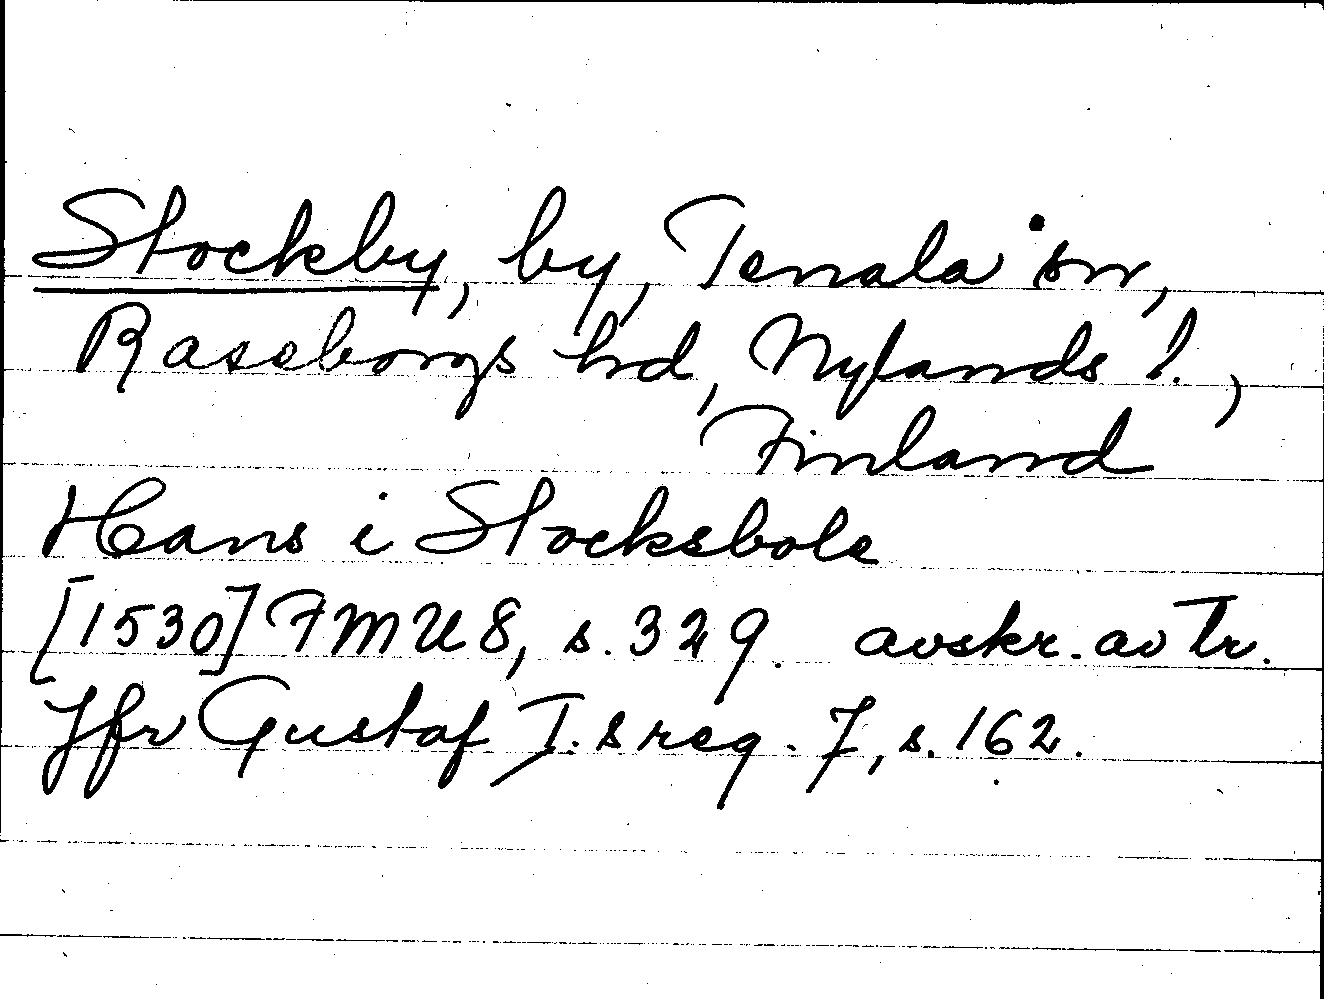 Stockby, by, Tenala sn,
Raseborgs hd, Nylands l.,
Finland
Hans i Stocksbole
[1530] FMU 8, s. 329. avskr. av tr.
Jfr Gustaf I.s reg. 7, s. 162.